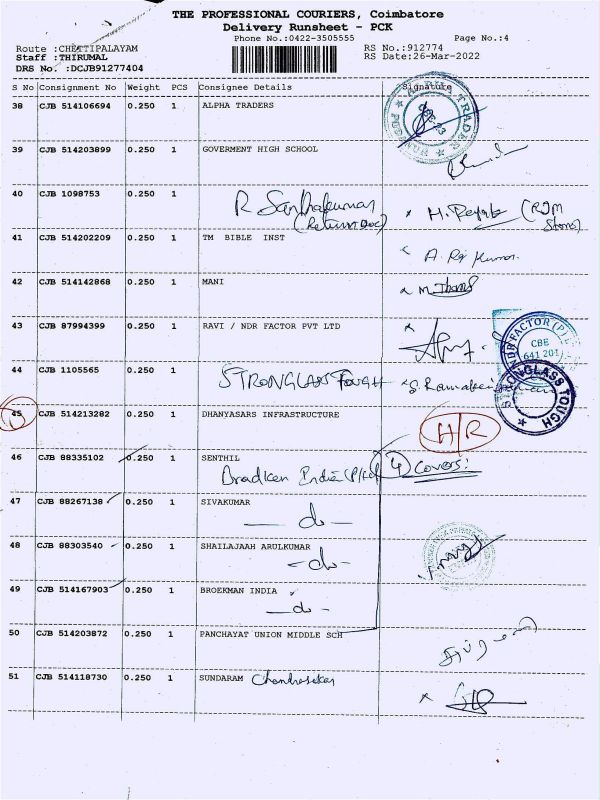 THE PROFESSIONAL COURIERS, Coimbatore
Delivery Runsheet - PCK
Phone No.:0422-3505555 Page No.:4
Route :CHETTIPALAYAM RS No.:912774
Staff :THIRUMAL RS Date:26-Mar-2022
DRS No. :DCJB91277404
S No Consignment No Weight PCS Consignee Details Signature
38 CJB 514106694 0.250 1 ALPHA TRADERS
39 CJB 514203899 0.250 1 GOVERMENT HIGH SCHOOL
40 CJB 1098753 0.250 1
R Santhakumar
(Return Doc) (RJM
Stores)
41 CJB 514202209 0.250 1 TM BIBLE INST
A. Raj Kumar
42 CJB 514142868 0.250 1 MANI
43 CJB 87994399 0.250 1 RAVI / NDR FACTOR PVT LTD
NDR FACTOR (P)
CBE
641 201
44 CJB 1105565 0.250 1
STRONGLASS TOUGH
STRONGLASS TOUGH
45 CJB 514213282 0.250 1 DHANYASARS INFRASTRUCTURE
H/R
46 CJB 88335102 0.250 1 SENTHIL
Bradken India (P) Ltd 4 Covers:
47 CJB 88267138 0.250 1 SIVAKUMAR
- do -
48 CJB 88303540 0.250 1 SHAILAJAAH ARULKUMAR
- do -
49 CJB 514167903 0.250 1 BROEKMAN INDIA
- do -
50 CJB 514203872 0.250 1 PANCHAYAT UNION MIDDLE SCH
51 CJB 514118730 0.250 1 SUNDARAM Chandrasekar